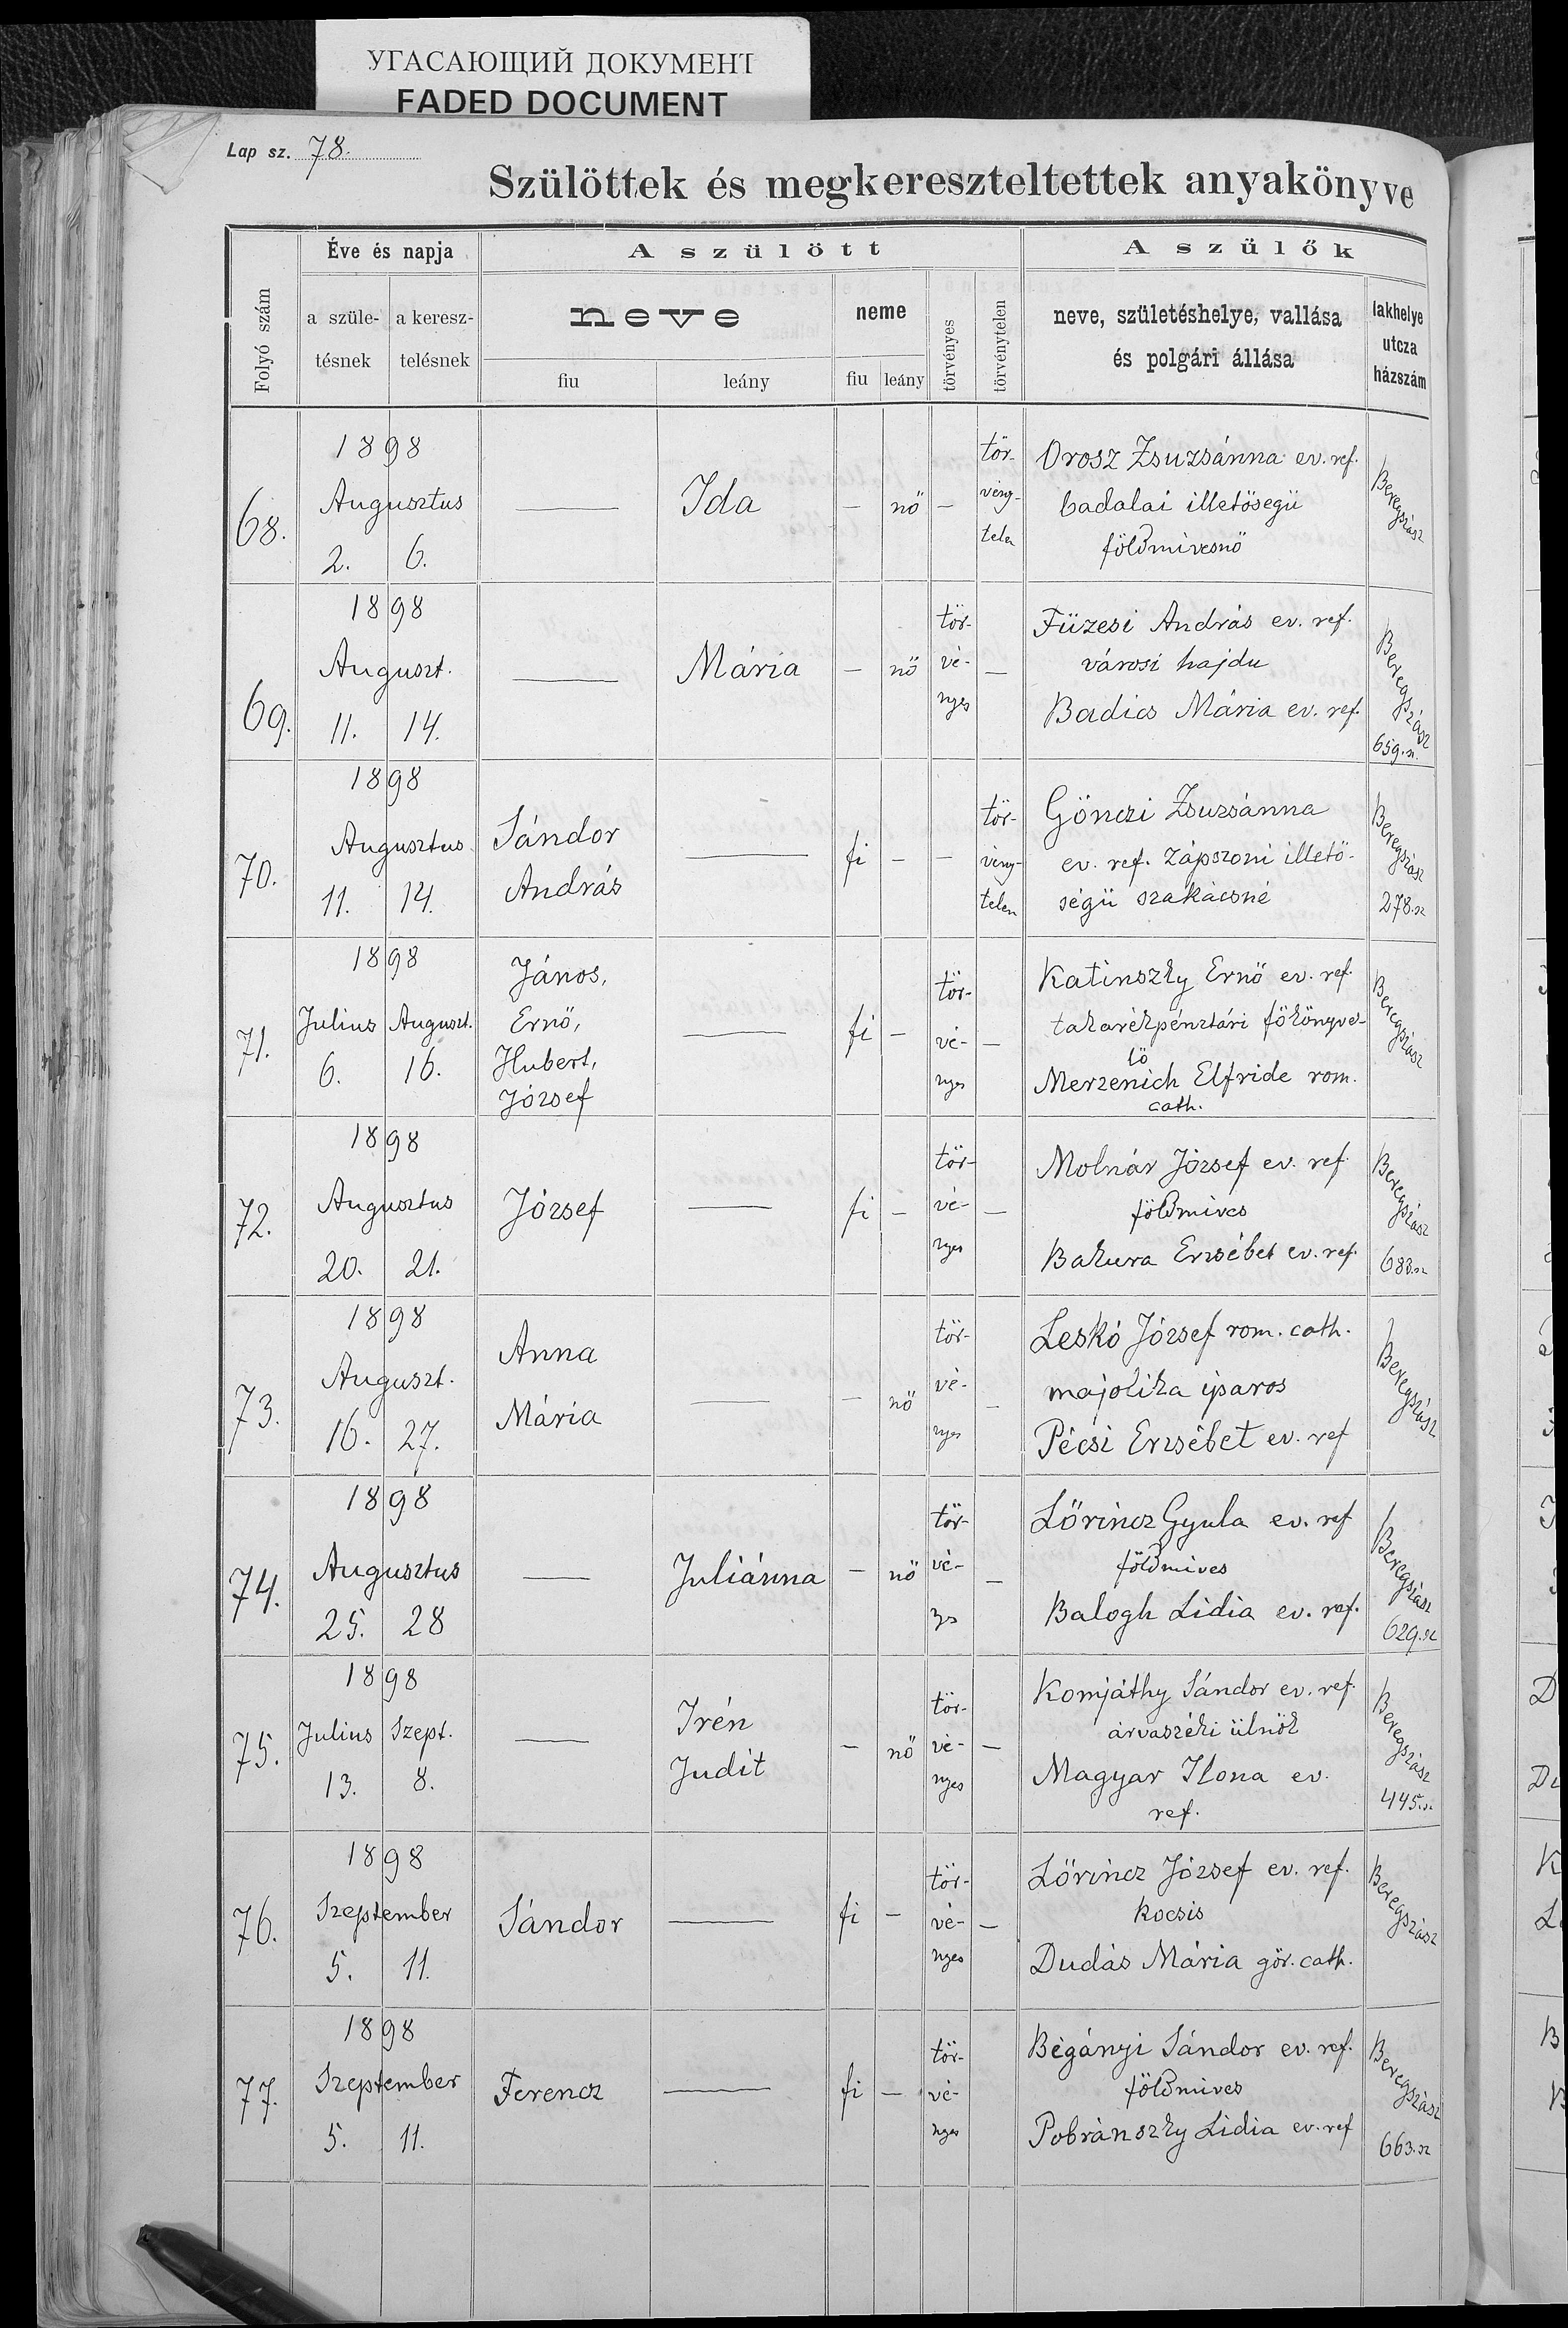 УГАСАЮЩИЙ ДОКУМЕНТ
FADED DOCUMENT
Lap sz. 78.
Szülöttek és megkereszteltettek anyakönyve
Folyó szám
Éve és napja
a szüle-
tésnek
a keresz-
telésnek
A szülött
neve
fiu
leány
neme
fiu
leány
törvényes
törvénytelen
A szülők
neve, születéshelye, vallása
és polgári állása
lakhelye
utcza
házszám
68.
1898
Augusztus
2. 6.
—
Ida
— nö —
tör-
vény-
telen
Orosz Zsuzsánna ev. ref.
badalai illetöségü
földmivesnö
Beregszász
69.
1898
Auguszt.
11. 14.
—
Mária
— nö
tör-
vé-
nyes
—
Füzesi András ev. ref.
városi hajdu
Badics Mária ev. ref.
Beregszász
659. sz.
70.
1898
Augusztus
11. 14.
Sándor
András
—
fi — —
tör-
vény-
telen
Gönczi Zsuzsánna
ev. ref. zápszoni illetö-
ségü szakácsné
Beregszász
278. sz
71.
1898
Julius Auguszt.
6. 16.
János,
Ernö,
Hubert,
József
—
fi —
tör-
vé-
nyes
—
Katinszky Ernö ev. ref.
takarékpénztári fökönyve-
lö
Merzenich Elfride rom.
cath.
Beregszász
72.
1898
Augusztus
20. 21.
József
—
fi —
tör-
vé-
nyes
—
Molnár József ev. ref.
földmives
Bakura Erzsébet ev. ref.
Beregszász
683. sz
73.
1898
Auguszt.
16. 27.
Anna
Mária
—
— nö
tör-
vé-
nyes
—
Leskó József rom. cath.
majolika iparos
Pécsi Erzsébet ev. ref
Beregszász
74.
1898
Augusztus
25. 28
—
Juliánna
— nö
tör-
vé-
—
Lőrincz Gyula ev. ref
földmives
Balogh Lidia ev. ref.
Beregszász
629. sz
75.
1898
Julius Szept.
13. 8.
—
Irén
Judit
— nö
tör-
vé-
nyes
—
Komjáthy Sándor ev. ref.
árvaszéki ülnök
Magyar Ilona ev.
ref.
Beregszász
445. sz.
76.
1898
Szeptember
5. 11.
Sándor
—
fi —
tör-
vé-
nyes
—
Lőrincz József ev. ref.
kocsis
Dudás Mária gör. cath.
Beregszász
77.
1898
Szeptember
5. 11.
Ferencz
—
fi —
tör-
vé-
nyes
Bégányi Sándor ev. ref.
földmives
Pobránszky Lidia ev. ref
Beregszász
663. sz